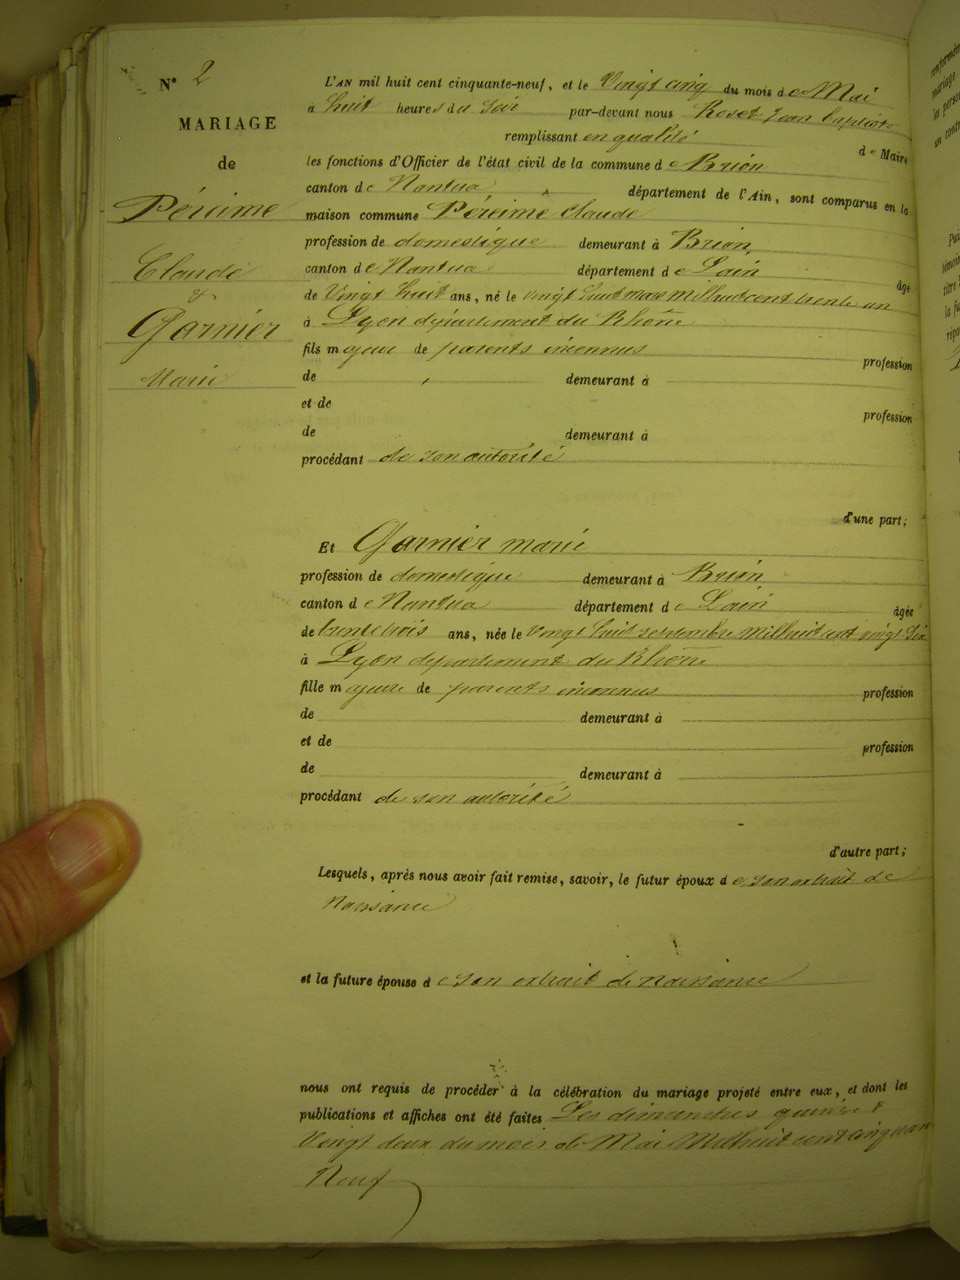 N° 2
MARIAGE
de
Péreime
Claude
&
Garnier
Marie
L'AN mil huit cent cinquante-neuf, et le Vingt cinq du mois de Mai
à huit heures du Soir par-devant nous Roset Jean Baptiste
remplissant en qualité de Maire
les fonctions d'Officier de l'état civil de la commune de Brion
canton de Nantua département de l'Ain, sont comparus en la
maison commune Péreime Claude
profession de domestique demeurant à Brion
canton de Nantua département de Lain âgé
de Vingt huit ans, né le vingt huit mars mil huit cent trente un
à Lyon département du Rhône
fils majeur de parents inconnus profession
de demeurant à
et de profession
de demeurant à
procédant de son autorité
d'une part;
Et Garnier marie
profession de domestique demeurant à Brion
canton de Nantua département de Lain âgée
de trente trois ans, née le vingt huit septembre mil huit cent vingt six
à Lyon département du Rhône
fille majeure de parents inconnus profession
de demeurant à
et de profession
de demeurant à
procédant de son autorité
d'autre part;
Lesquels, après nous avoir fait remise, savoir, le futur époux de son extrait de
Naissance
et la future épouse de son extrait de naissance
nous ont requis de procéder à la célébration du mariage projeté entre eux, et dont les
publications et affiches ont été faites Les dimanches quinze &
Vingt deux du mois de Mai Mil huit cent cinquan
Neuf